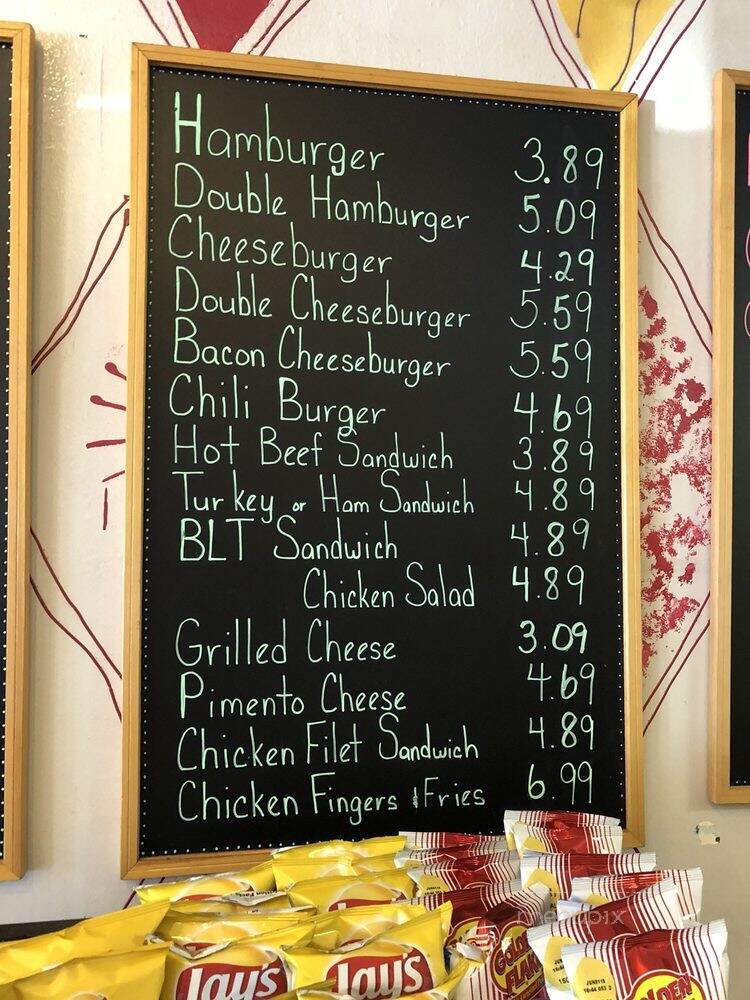 Hamburger 3.89
Double Hamburger 5.09
Cheeseburger 4.29
Double Cheeseburger 5.59
Bacon Cheeseburger 5.59
Chili Burger 4.69
Hot Beef Sandwich 3.89
Turkey or Ham Sandwich 4.89
BLT Sandwich 4.89
Chicken Salad 4.89
Grilled Cheese 3.09
Pimento Cheese 4.69
Chicken Filet Sandwich 4.89
Chicken Fingers & Fries 6.99
Lay's
Lay's
GOLDEN
FLAKE
menupix